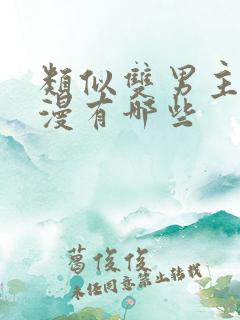 類似雙男主
漫有哪些
葛俊俊
未經同意禁止轉載